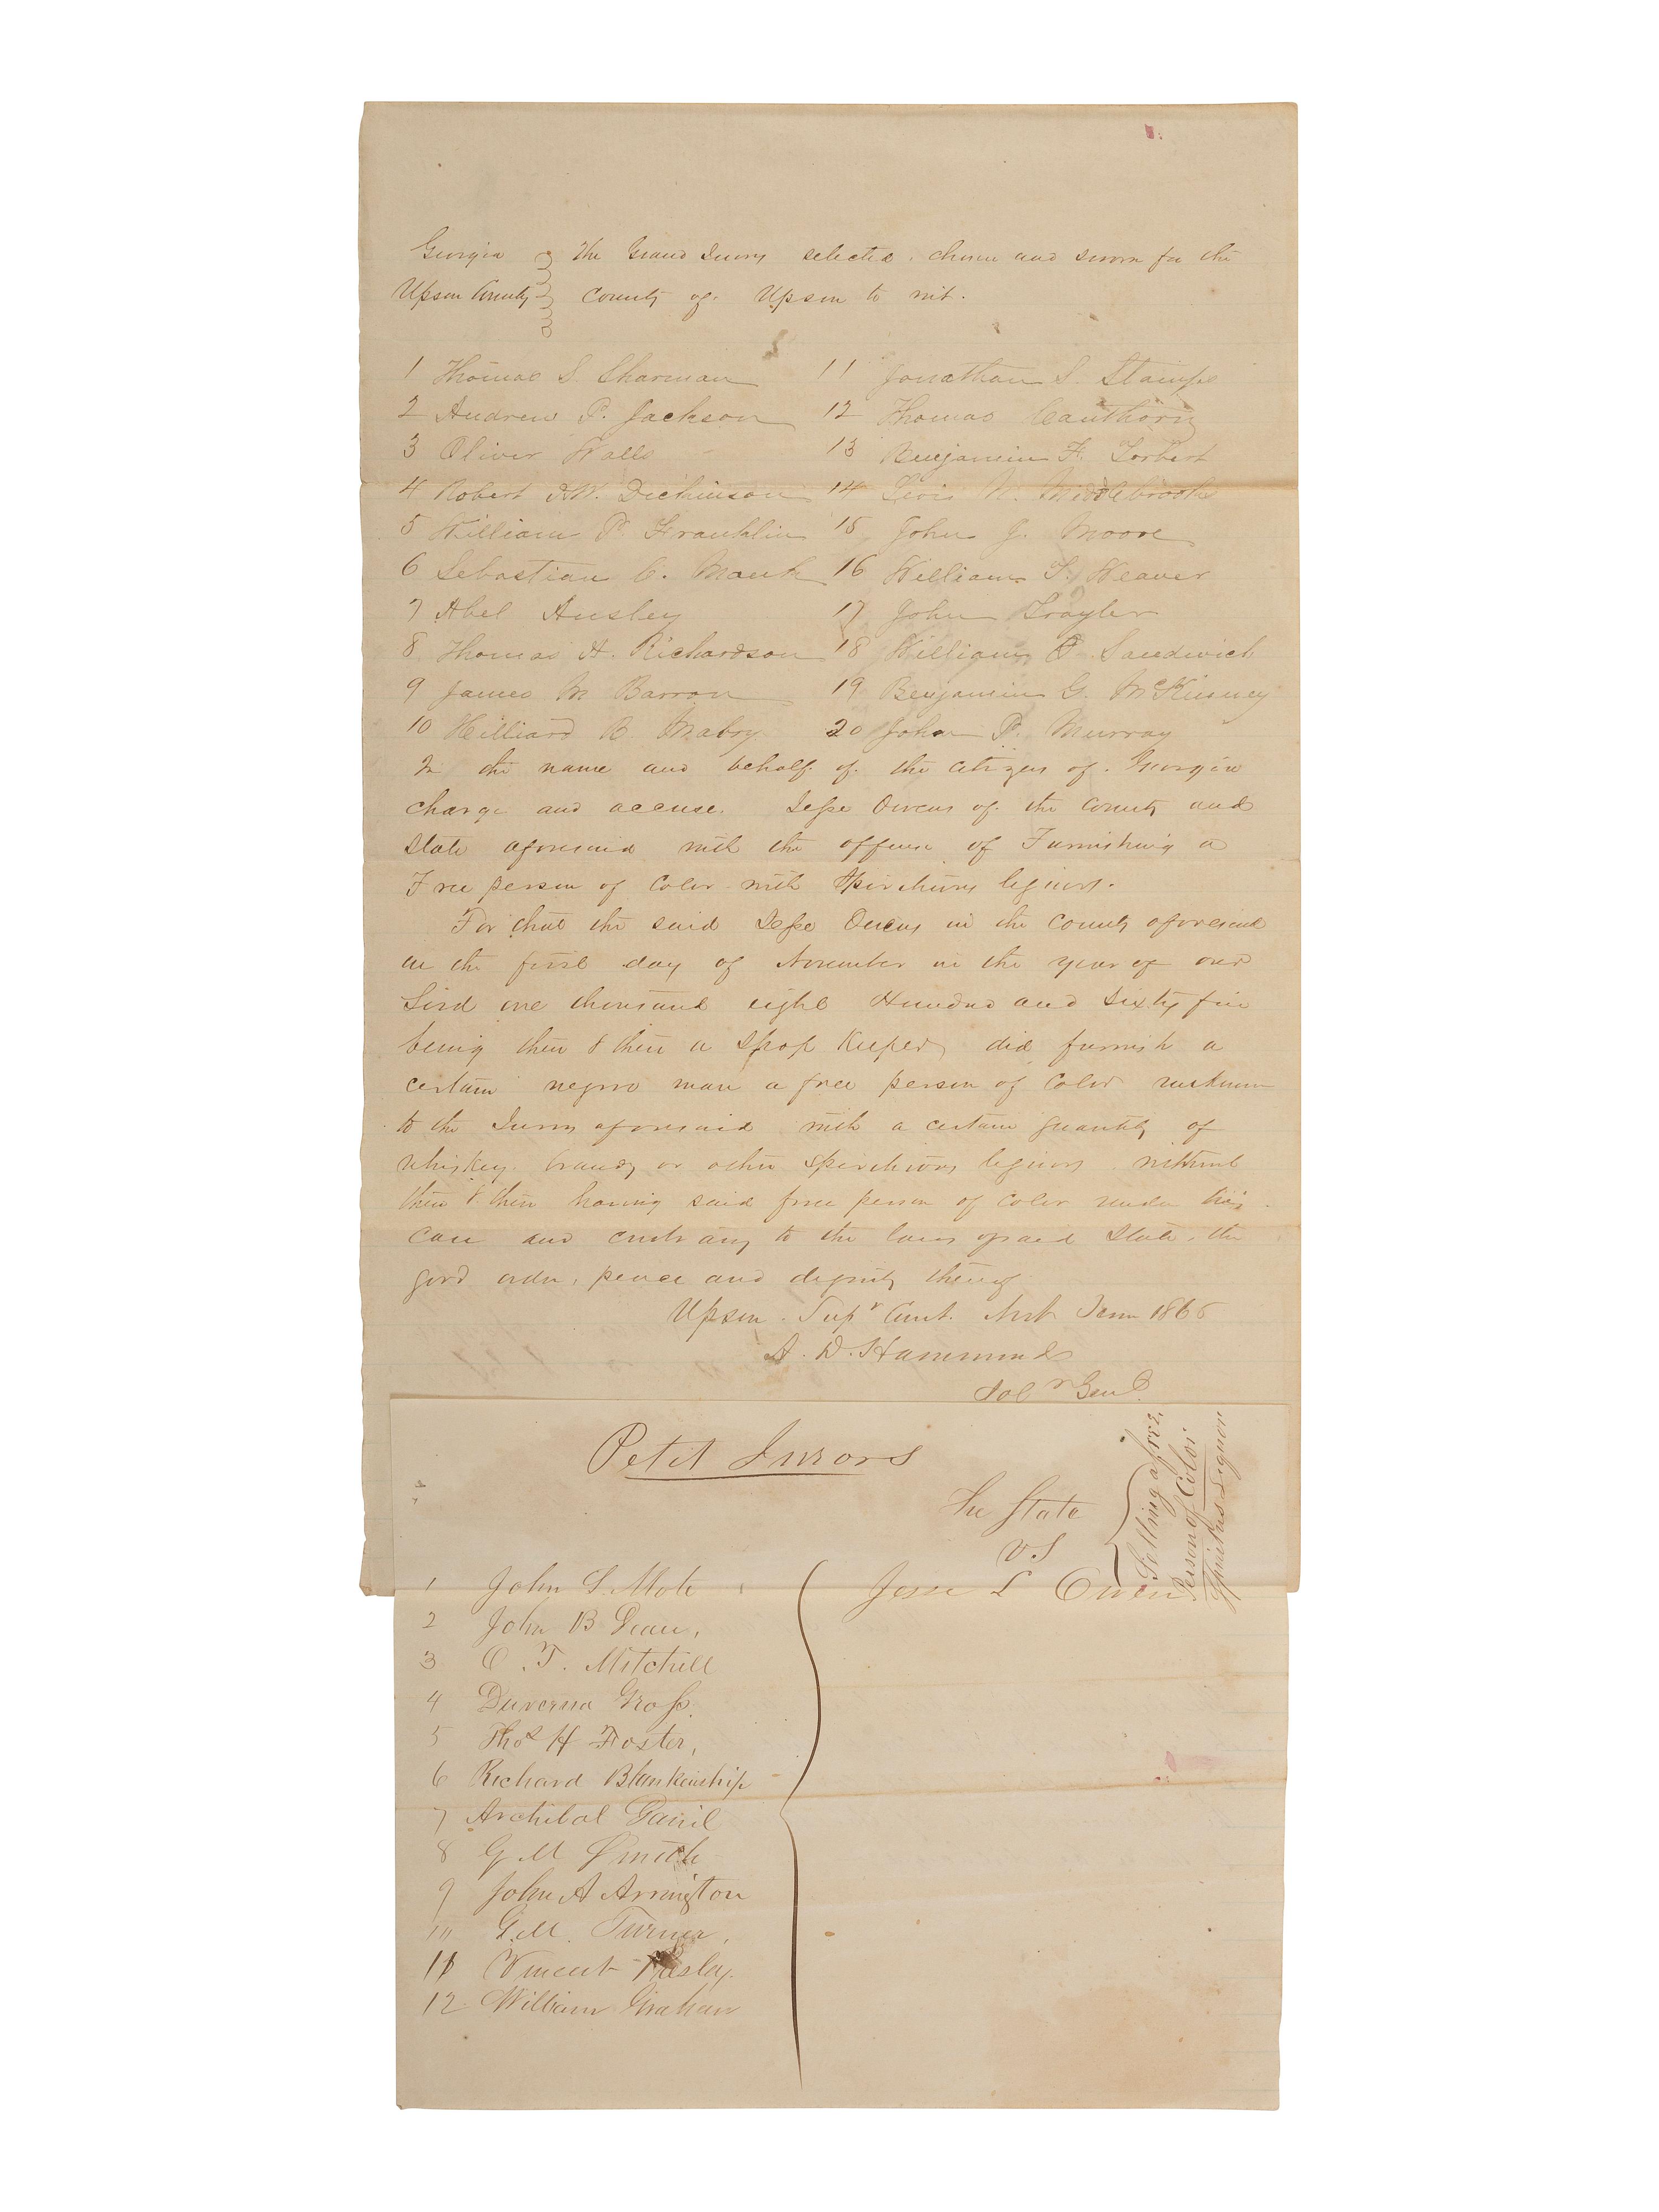 Georgia The Grand Jurors selected, chosen and sworn for the
Upson County County of Upson to wit.
1 Thomas S. Sharman
2 Andrew P. Jackson
3 Oliver Walls
4 Robert W. Dickinson
5 William P. Franklin
6 Sebastian C. Mauk
7 Abel Ansley
8 Thomas A. Richardson
9 James M Barron
10 Hilliard R Mabry
11 Jonathan S. Stamps
12 Thomas Cauthorn
13 Benjamin F. Torbert
14 Levi N. Middlebrook
15 John J. Moore
16 William T. Weaver
17 John Traylor
18 William Sandwich
19 Benjamin G. McKinney
20 John P. Murray
In the name and behalf of the citizens of Georgia
charge and accuse Jesse Owens of the County and
State aforesaid with the offense of Furnishing a
Free person of Color with Spirituous liquors.
For that the said Jesse Owens in the County aforesaid
on the first day of November in the year of our
Lord one thousand eight Hundred and Sixty five
being then & there a Shop Keeper did furnish a
certain negro man a free person of Color unknown
to the Jurors aforesaid with a certain quantity of
whiskey brandy or other spirituous liquors without
then & there having said free person of color under his
care and contrary to the laws of said State, the
good order, peace and dignity thereof
Upson Supr Court. Term 1866
A. D. Hammond
Solr Genl.
Petit Jurors
The State
vs
Jesse L Owen
Selling a free
Person of Color
Spiritus Liquors
1 John S. Mote
2 John B Dean,
3 C. T. Mitchell
4 Gross.
5 Thos H Foster,
6 Richard Blankenship
7 Archibal Daniel
8 G M Smith
9 John A Arrington
10 G. M. Turner,
11 Vincent
12 William Graham